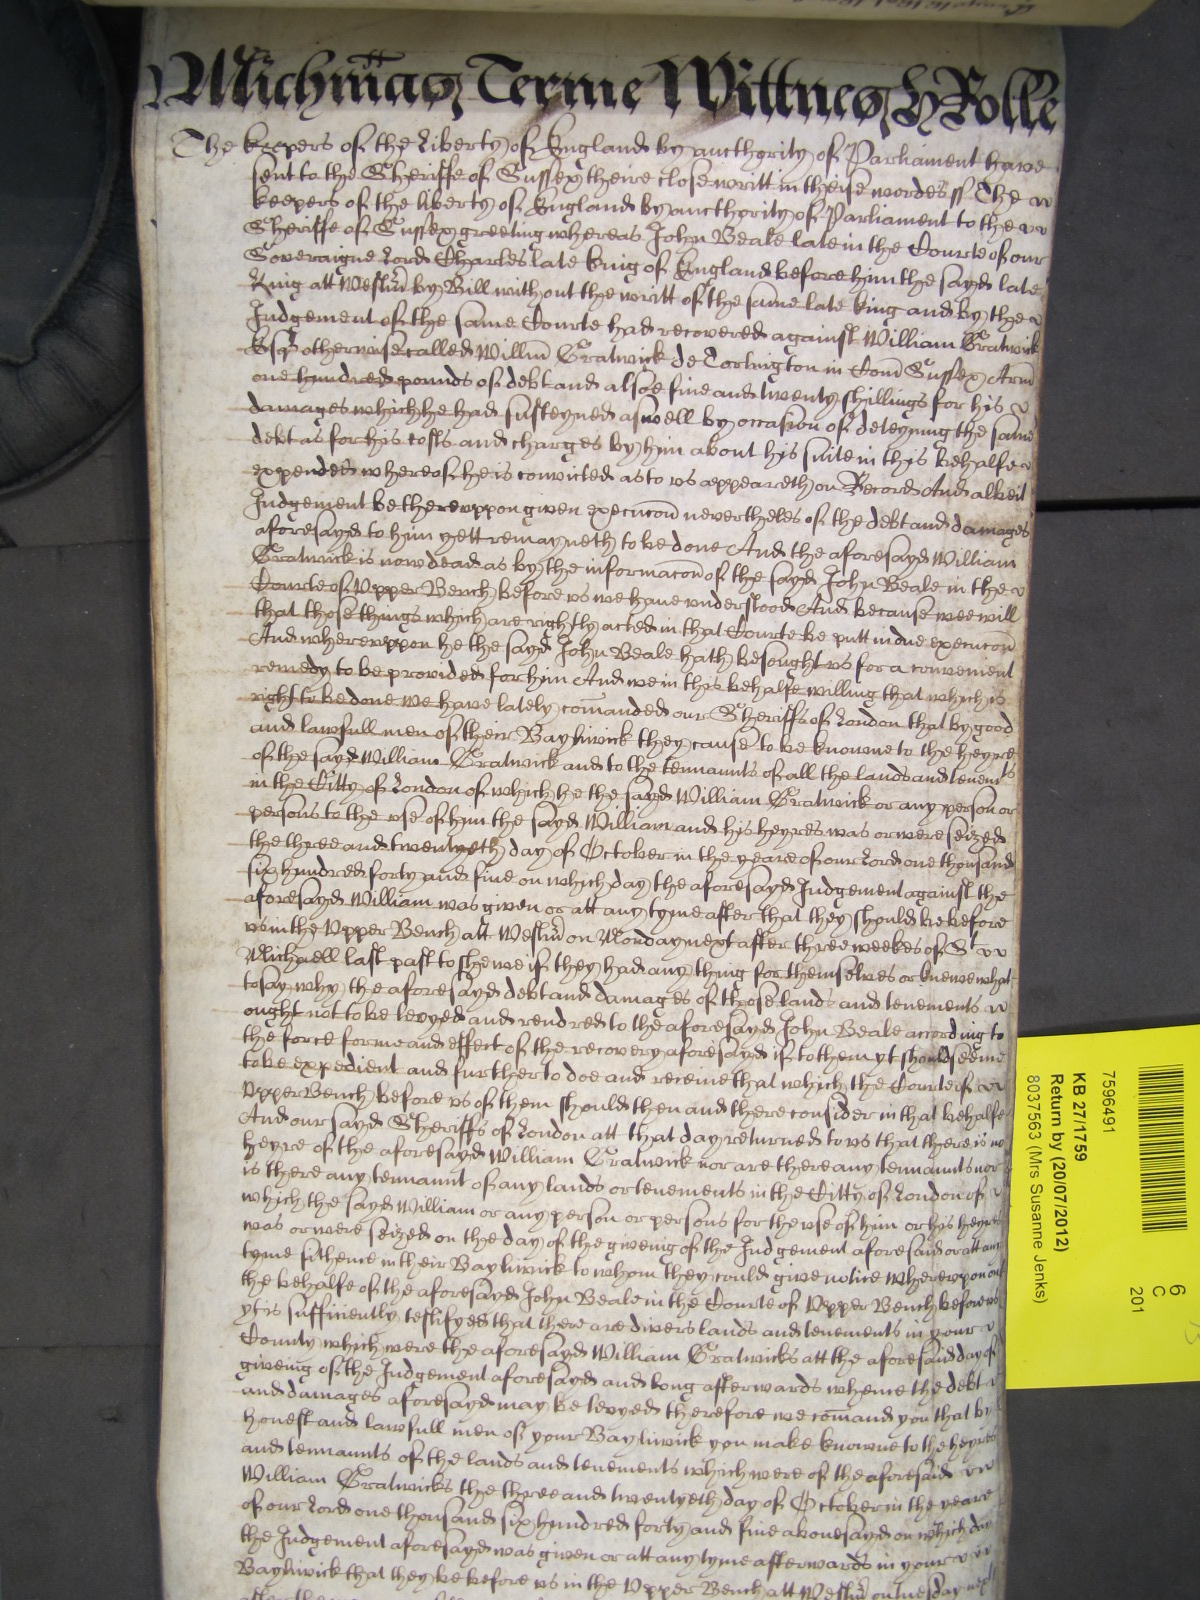 Michmas Terme Wittnes H Rolle
The keepers of the liberty of England by aucthority of Parliament have
sent to the Sheriffe of Sussex theire close writt in theise wordes ss The
keepers of the liberty of England by aucthority of Parliament to the
Sheriffe of Sussex greeting whereas John Beale late in the Courte of our
Soveraigne Lord Charles late king of England before him the sayd late
King att Westm by Bill without the writt of the same late king and by the
Judgement of the same Courte had recovered against William Gratwick
Esqr otherwise called Willm Gratwick de Tortington in Com Sussex Arm
one hundred pounds of debt and alsoe five and twenty shillings for his
damages which he had susteyned aswell by occasion of deteyning the same
debt as for his costs and charges by him about his suite in this behalfe
expended whereof he is convicted as to us appeareth on Record And albeit
Judgement be thereuppon given execucon nevertheles of the debt and damages
aforesayd to him yett remayneth to be done And the aforesayd William
Gratwick is now dead as by the informacon of the sayd John Beale in the
Courte of Upper Bench before us we have understood And because wee will
that those things which are rightly acted in that Courte be putt in due execucon
And whereuppon he the sayd John Beale hath besought us for a convenient
remedy to be provided for him And we in this behalfe willing that which is
right to be done we have lately comanded our Sheriffs of London that by good
and lawfull men of their Bayliwick they cause to be knowne to the heyres
of the sayd William Gratwick and to the tennaunts of all the lands and tenemts
in the Citty of London of which he the sayd William Gratwick or any person or
persons to the use of him the sayd William and his heyres was or were seized
the three and twentyeth day of October in the yeare of our Lord one thousand
six hundred forty and five on which day the aforesayd Judgement against the
aforesayd William was given or att any tyme after that they should be before
us in the Upper Bench att Westm on Monday next after three weekes of St
Michaell last past to shewe if they had any thing for themselves or knewe what
to say why the aforesayd debt and damages of those lands and tenements
ought not to be levyed and rendred to the aforesayd John Beale according to
the force forme and effect of the recovery aforesayd if to them yt should seeme
to be expedient and further to doe and receive that which the Courte of
Upper Bench before us of them should then and there consider in that behalfe
And our sayd Sheriffs of London att that day returned to us that there is no
heyre of the aforesayd William Gratwick nor are there any tennaunts nor
is there any tennaunt of any lands or tenements in the Citty of London of
which the sayd William or any person or persons for the use of him or his heyres
was or were seized on the day of the giveing of the Judgement aforesaid or att any
tyme sithence in their Bayliwick to whom they could give notice Whereuppon on
the behalfe of the aforesayd John Beale in the Courte of Upper Bench before us
yt is sufficiently testifyed that there are divers lands and tenements in your
County which were the aforesayd William Gratwicks att the aforesaid day of
giveing of the Judgement aforesayd and long afterwards whence the debt
and damages aforesayd may be levyed therefore we comand you that by
honest and lawfull men of your Bayliwick you make knowne to the heyres
and tennaunts of the lands and tenements which were of the aforesaid
William Gratwicks the three and twentyeth day of October in the yeare
of our Lord one thousand six hundred forty and five abovesayd on which day
the Judgement aforesayd was given or att any tyme afterwards in your
Bayliwick that they be before us in the Upper Bench att Westm on tuesday next
7596491
KB 27/1759
Return by (20/07/2012)
8037563 (Mrs Susanne Jenks)
6
C
201